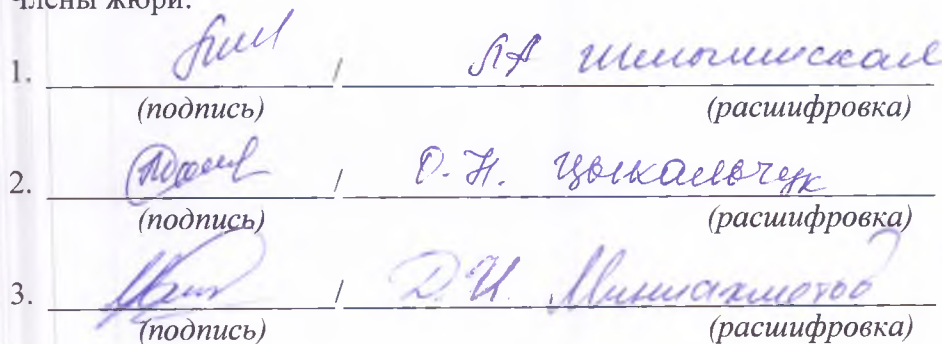 члены жюри:
1. / ЛА
(подпись) (расшифровка)
2. / О.Н. Цыкальчук
(подпись) (расшифровка)
3. / Д.И. Миниахметов
(подпись) (расшифровка)